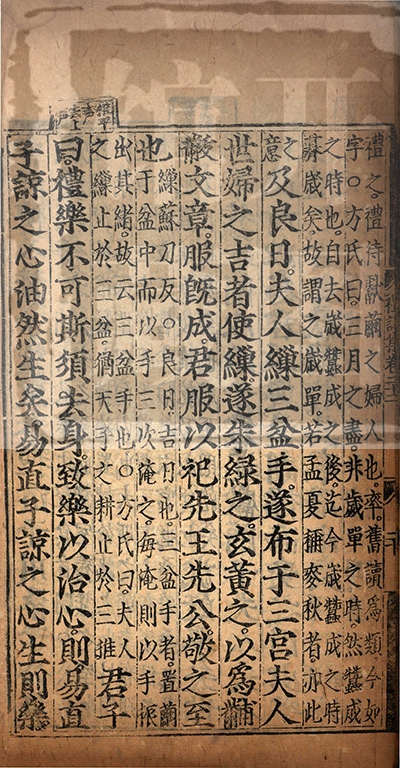 禮之。禮待獻繭之婦人也。率。舊讀爲類。今如
字。○方氏曰。三月之盡。非歲單之時。然蠶成
之時也。自去歲蠶成之後。迄今歲蠶成之時
朞歲矣。故謂之歲單。若孟夏稱麥秋者。亦此
之
意
及良日。夫人繅三盆手。遂布于三宮夫人
世婦之吉者使繅。遂朱綠之。玄黃之。以爲黼
黻文章。服旣成。君服以祀先王先公。敬之至
也
繅蘇刀反。○良日。吉日也。三盆手者。置繭
于盆中而以手三次淹之。每淹則以手振
出其緒。故云三盆手也。○方氏曰。夫人
之繅止於三盆。猶天子之耕止於三推
君子
曰。禮樂不可斯須去身。致樂以治心。則易直
子諒之心油然生矣。易直子諒之心生則樂